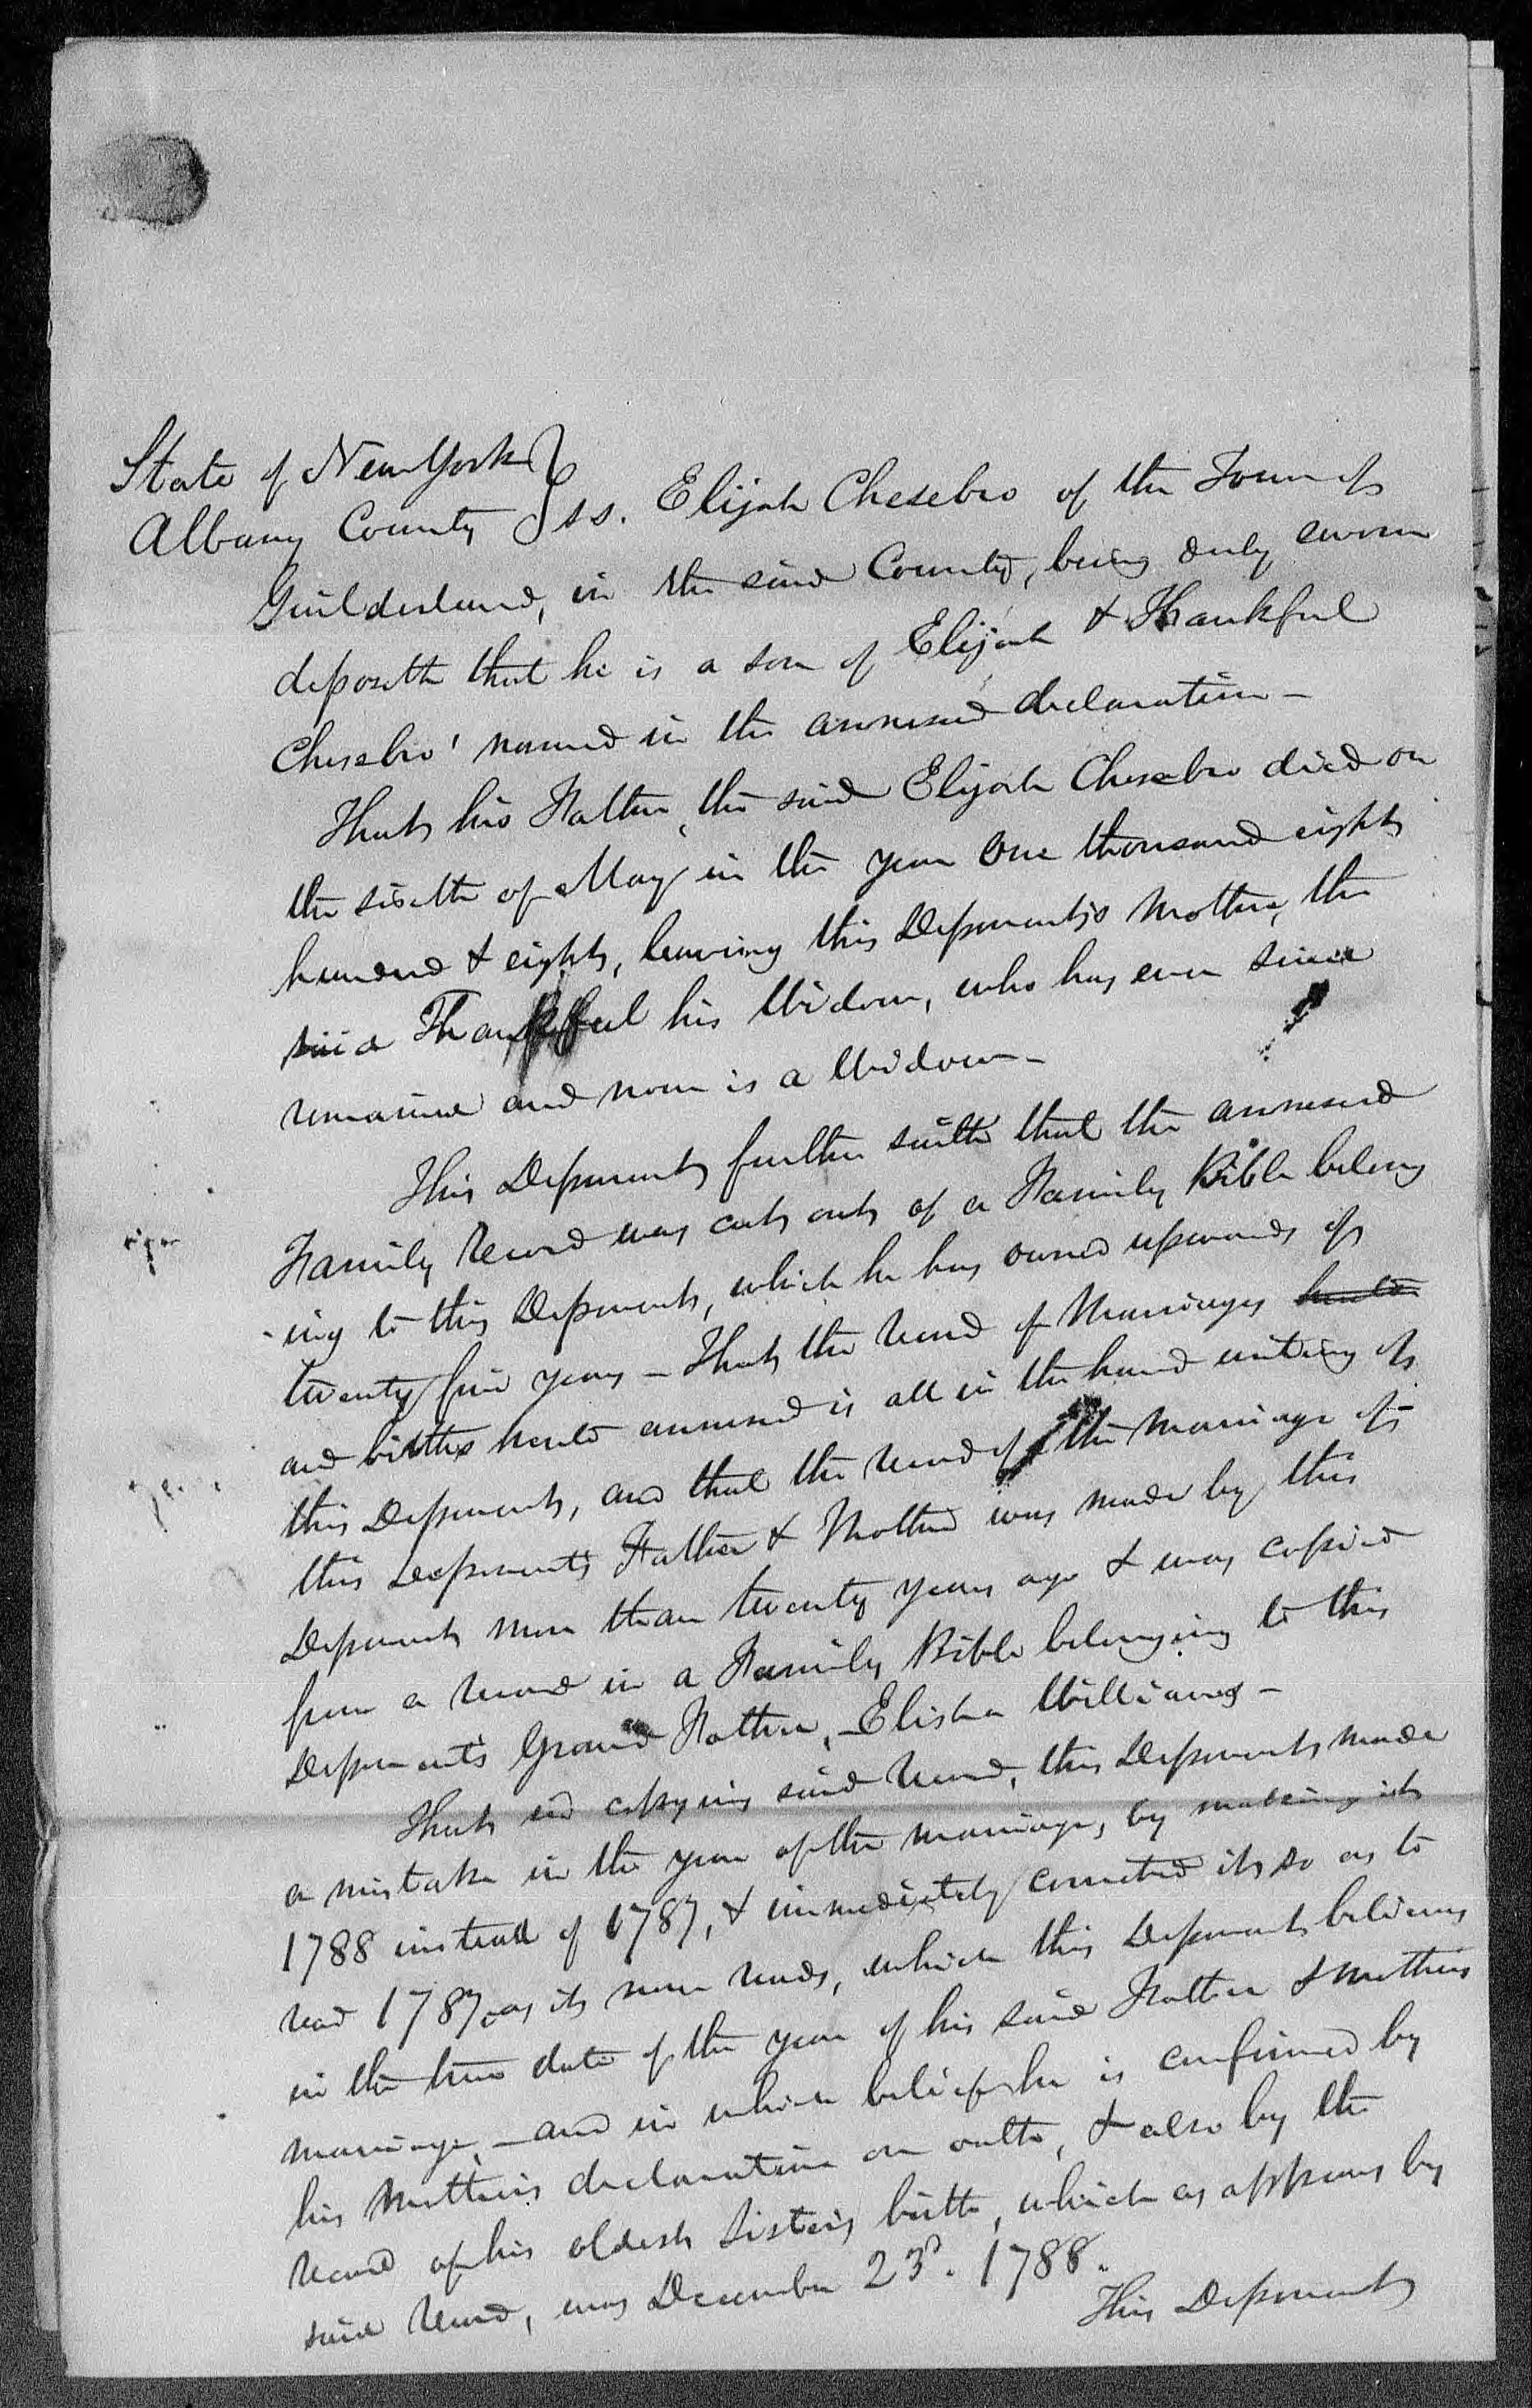 State of New York
Albany County ss. Elijah Chesebro of the Town of
Guilderland, in the said County, being duly sworn
deposeth that he is a son of Elijah & Thankful
Chesebro' named in the annexed declaration -
That his Father, the said Elijah Chesebro died on
the sixth of May in the year One thousand eight
hundred & eight, leaving this Deponent's Mother, the
said Thankful his Widow, who has ever since
remained and now is a Widow -
This Deponent further saith that the annexed
Family Record was cut out of a Family Bible belong
ing to this Deponent, which he has owned upwards of
twenty five years - That the record of Marriages hereto
and births hereto annexed is all in the hand writing of
this Deponent, and that the record of the marriage of
this Deponent's Father & Mother was made by this
Deponent more than twenty years ago & was copied
from a record in a Family Bible belonging to this
Deponent's Grand Father, - Elisha Williams -
That in copying said record, this Deponent made
a mistake in the year of the marriage, by making it
1788 instead of 1787, & immediately corrected it so as to
read 1787, as it now reads, which this Deponent believes
is the true date of the year of his said Father & Mothers
marriage, - and in which belief he is confirmed by
his Mother's declaration on oath, & also by the
record of his oldest Sister's birth, which as appears by
said record, was December 23d. 1788.
This Deponent